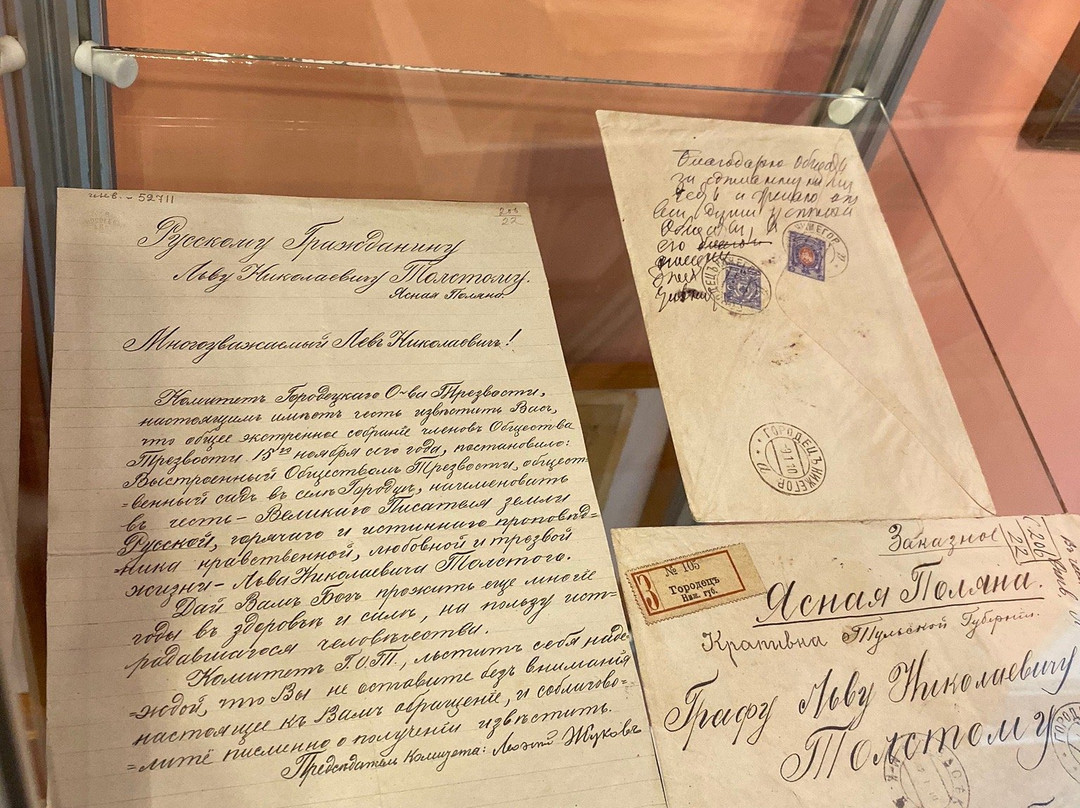 инв. - 52711
22
Русскому Гражданину
Льву Николаевичу Толстому.
Ясная Поляна.
Многоуважаемый Левъ Николаевичъ!
Комитетъ Городецкаго О-ва Трезвости,
настоящимъ имѣетъ честь извѣстить Васъ,
что общее экстренное собранiе членовъ Общества
Трезвости 15го ноября сего года, постановило:
Выстроенный Обществомъ Трезвости, общест-
=венный садъ въ селѣ Городцѣ, наименовать
въ честь - Великаго Писателя земли
Русской, горячаго и истиннаго проповѣд-
=ника нравственной, любовной и трезвой
жизни - Льва Николаевича Толстого.
Дай Вамъ Богъ прожить еще многiе
годы въ здоровьѣ и силѣ, на пользу ист-
=радавшагося человѣчества.
Комитетъ Г.О.Т., льститъ себя наде-
=ждой, что Вы не оставите безъ вниманiя
настоящее къ Вамъ обращенiе, и соблагово-
=лите писменно о полученiи извѣстить.
Предсѣдатель Комитета: Жуковъ
Благодарю
за
и
Общества, и
его
ГОРОДЕЦЪ НИЖЕГОР.
Заказное
22
З
№ 105
Городецъ
Ниж. губ.
Ясная Поляна.
Крапивна Тульской Губернiи.
Графу Льву Николаевичу
Толстому